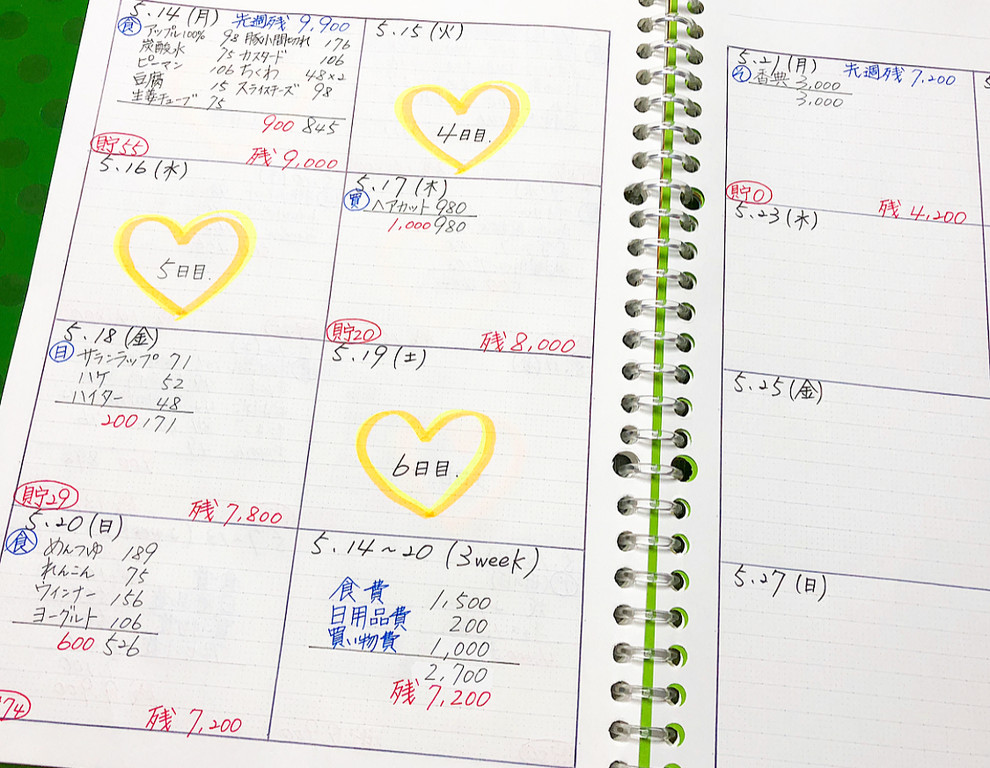 5.14 (月) 先週残 9,900
食 アップル100% 98 豚小間切れ 176
炭酸水 75 カスタード 106
ピーマン 106 ちくわ 48×2
豆腐 15 スライスチーズ 98
生姜チューブ 75
900 845
貯55 残 9,000
5.15 (火)
4日目.
5.16 (水)
5日目.
5.17 (木)
買 ヘアカット 980
1,000 980
貯20 残 8,000
5.18 (金)
日 サランラップ 71
ハケ 52
ハイター 48
200 171
貯29 残 7,800
5.19 (土)
6日目.
5.20 (日)
食 めんつゆ 189
れんこん 75
ウィンナー 156
ヨーグルト 106
600 526
74 残 7,200
5.14～20 (3week)
食費 1,500
日用品費 200
買い物費 1,000
2,700
残 7,200
5.21 (月) 先週残 7,200
そ 香典 3,000
3,000
貯0 残 4,200
5.23 (水)
5.25 (金)
5.27 (日)